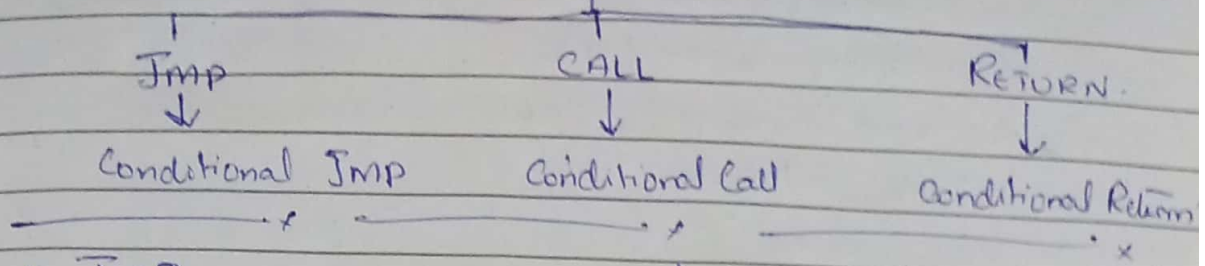 Jmp CALL RETURN.
Conditional Jmp Conditional Call Conditional Return